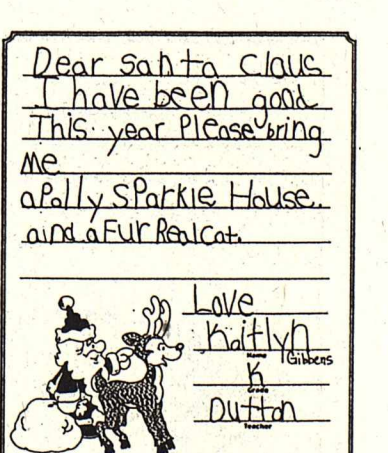 Dear santa claus
I have been good
This year Please bring
me
a Polly SParkle House.
aind a Fur Real Cat.
Love
Kaitlyn
Name
Gibbens
K
Grade
Dutton
Teacher